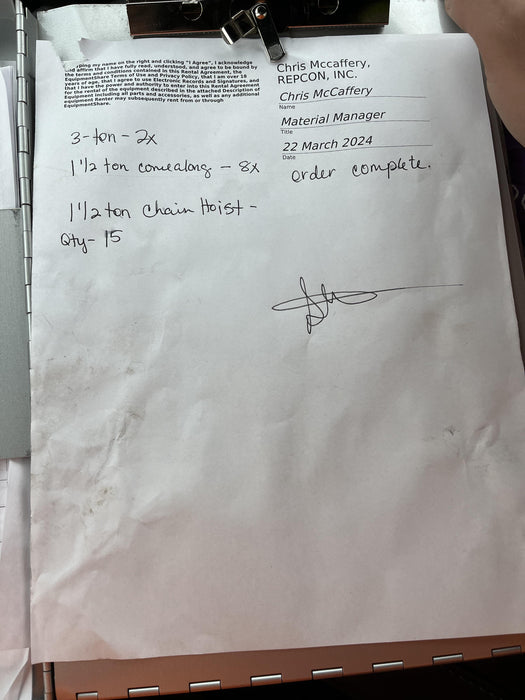 ping my name on the right and clicking "I Agree", I acknowledge
and affirm that I have fully read, understood, and agree to be bound by
the terms and conditions contained in this Rental Agreement, the
EquipmentShare Terms of Use and Privacy Policy, that I am over 18
years of age, that I agree to use Electronic Records and Signatures, and
that I have the power and authority to enter into this Rental Agreement
for the rental of the equipment described in the attached Description of
Equipment including all parts and accessories, as well as any additional
equipment Renter may subsequently rent from or through
EquipmentShare.
Chris Mccaffery,
REPCON, INC.
Chris McCaffery
Name
Material Manager
Title
22 March 2024
Date
order complete.
3-ton - 2x
1 1/2 ton comealong - 8x
1 1/2 ton Chain Hoist -
Qty- 15